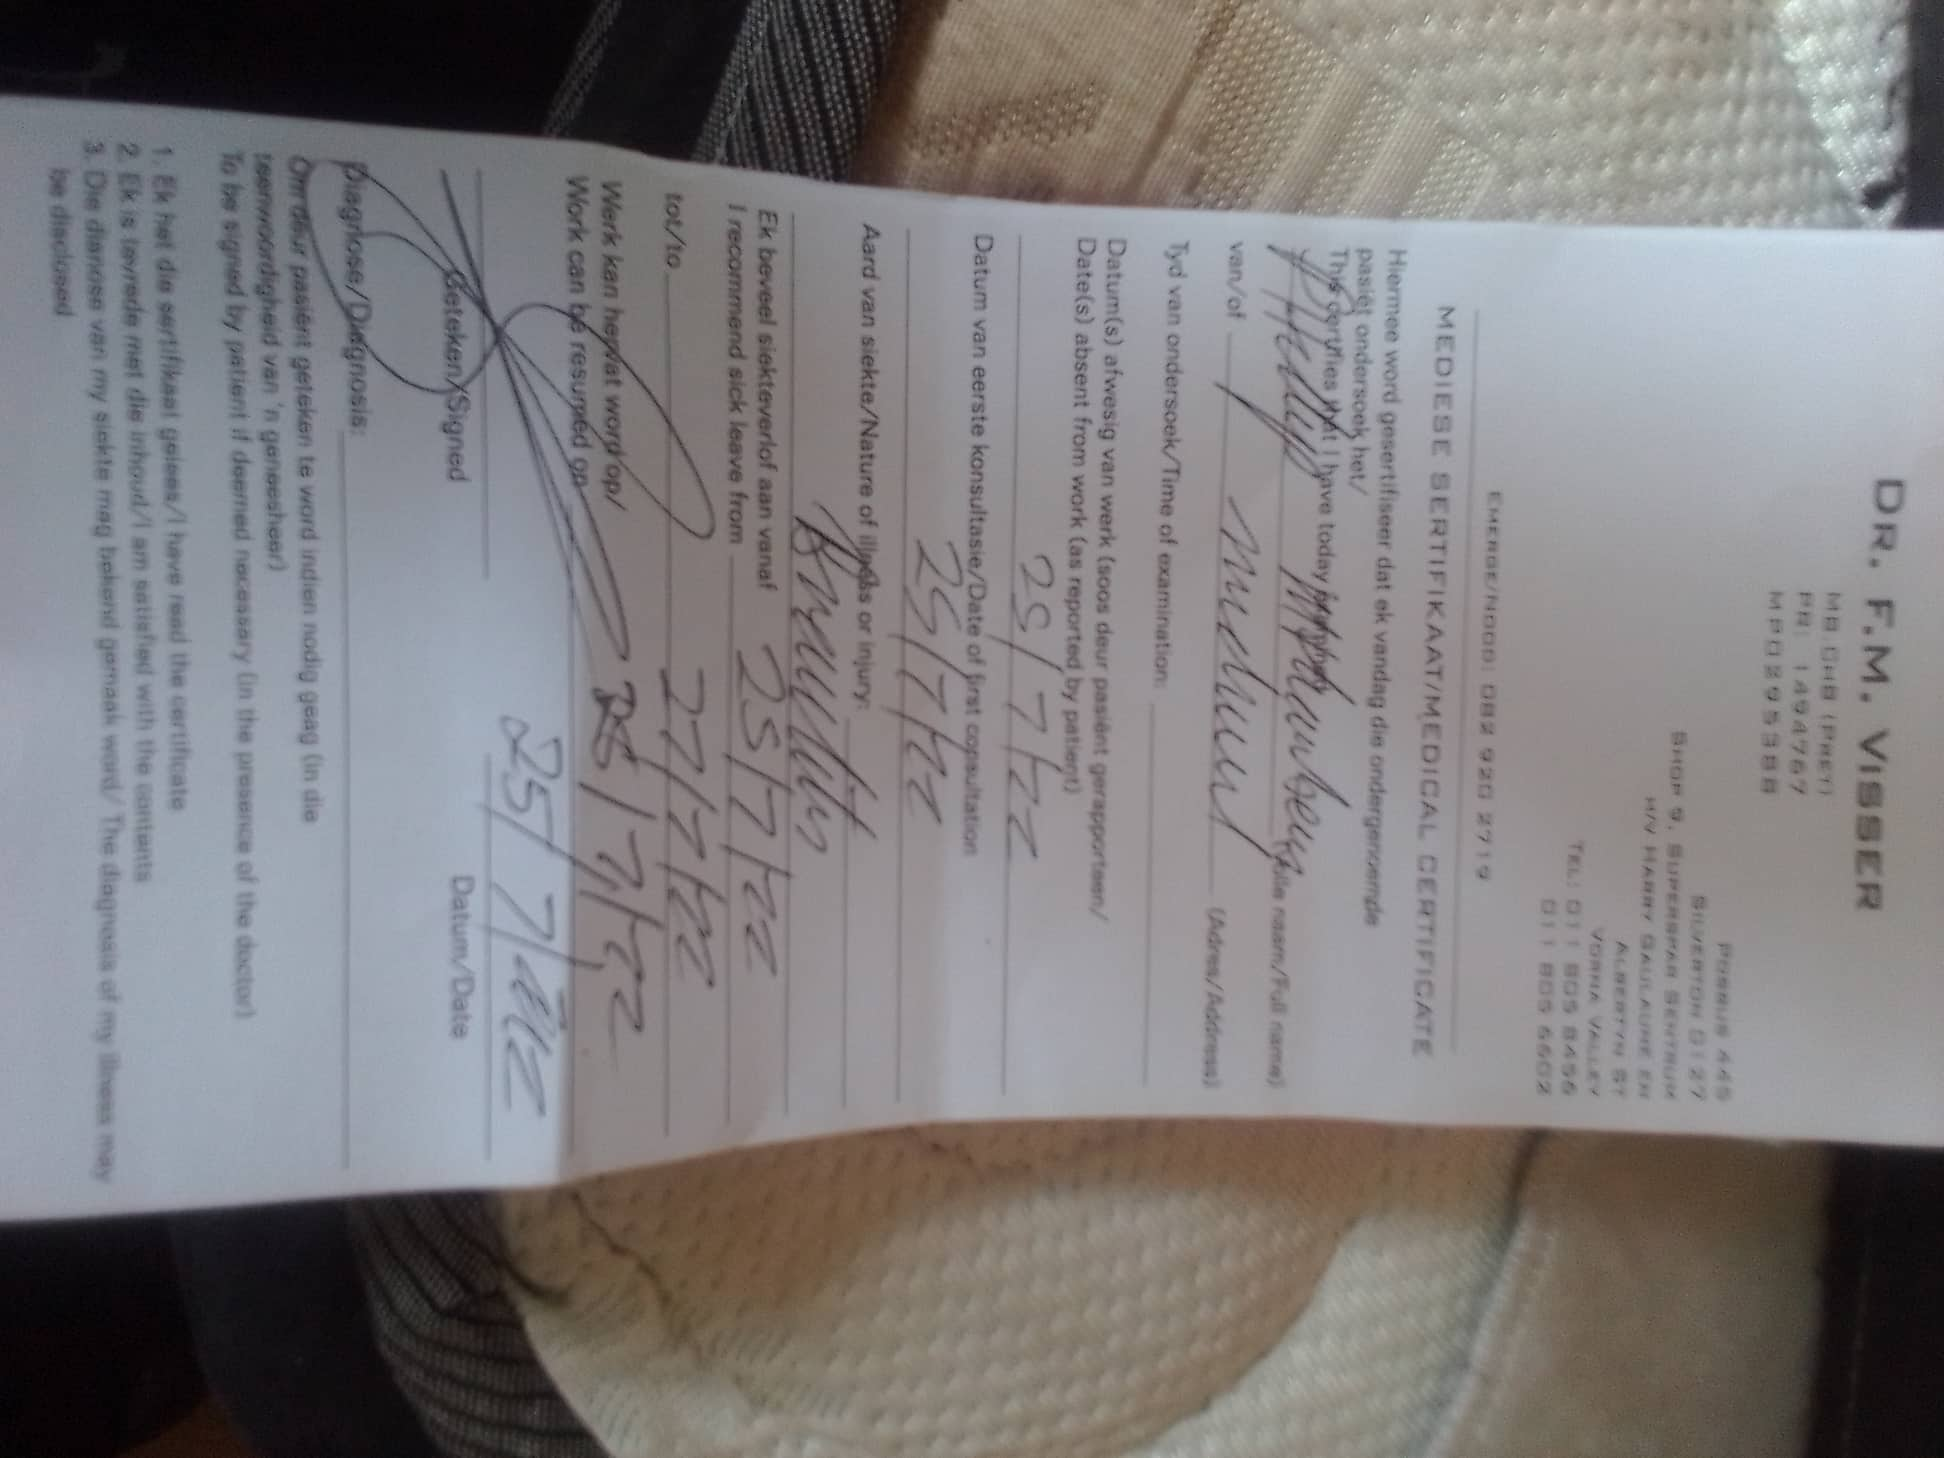 DR. F.M. VISSER
MB.CHB (PRET)
PR: 1494767
MP0295388
POSBUS 445
SILVERTON 0127
SHOP 9, SUPERSPAR SENTRUM
H/V HARRY GALAUNE EN
ALBERTYN ST
VORNA VALLEY
TEL: 011 805 8456
011 805 6602
EMERGE/NOOD: 082 920 2719
MEDIESE SERTIFIKAAT/MEDICAL CERTIFICATE
Hiermee word gesertifiseer dat ek vandag die ondergenoemde
pasiët ondersoek het/
This certifies that I have today
(Volle naam/Full name)
van/of (Adres/Address)
Tyd van ondersoek/Time of examination:
Datum(s) afwesig van werk (soos deur pasiënt gerapporteer/
Date(s) absent from work (as reported by patient)
25/7/22
Datum van eerste konsultasie/Date of first consultation
25/7/22
Aard van siekte/Nature of illness or injury:
Ek beveel siekteverlof aan vanaf
I recommend sick leave from 25/7/22
tot/to 27/7/22
Werk kan hervat word op/
Work can be resumed on 28/7/22
25/7/22
Geteken/Signed Datum/Date
Diagnose/Diagnosis:
Om deur pasiënt geteken te word indien nodig geag (in die
teenwoordigheid van 'n geneesheer)
To be signed by patient if deemed necessary (in the presence of the doctor)
1. Ek het die sertifikaat gelees/I have read the certificate
2. Ek is tevrede met die inhoud/I am satisfied with the contents
3. Die diagnose van my siekte mag bekend gemaak word/ The diagnosis of my illness may
be disclosed